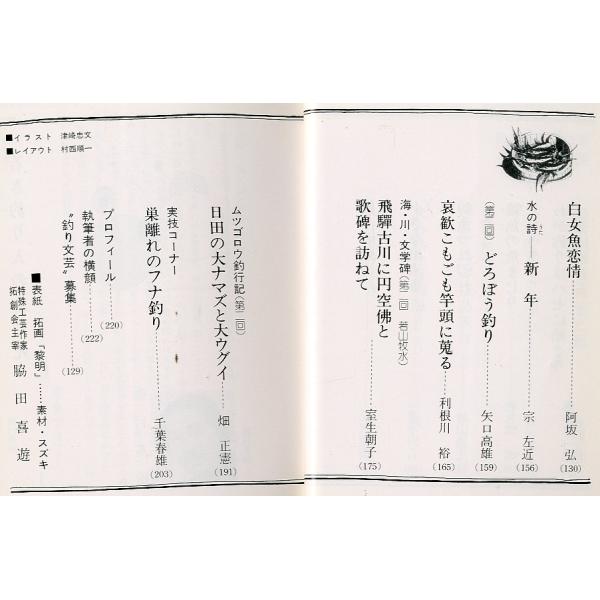 白女魚恋情……阿坂 弘(130)
水の詩 うた 新年……宗 左近(156)
(第二回) どろぼう釣り……矢口高雄(159)
哀歓こもごも竿頭に蒐る……利根川 裕(165)
海・川・文学碑(第二回 若山牧水)
飛驒古川に円空佛と
歌碑を訪ねて……室生朝子(175)
ムツゴロウ釣行記(第二回)
日田の大ナマズと大ウグイ……畑 正憲(191)
実技コーナー
巣離れのフナ釣り……千葉春雄(203)
プロフィール……(220)
執筆者の横顔……(222)
“釣り文芸”募集……(129)
■表紙 拓画「黎明」……素材・スズキ
特殊工芸作家
拓創会主宰 脇田喜遊
■イラスト 津崎忠文
■レイアウト 村西順一